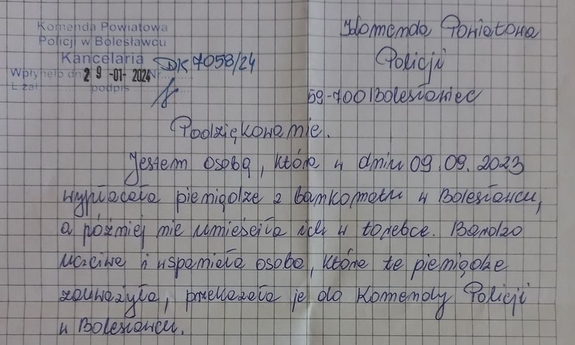 Komenda Powiatowa
Policji w Bolesławcu
Kancelaria
Wpłynęło dnia 29 -01- 2024
L. zał. podpis
DK 7058/24
Komenda Powiatowa
Policji
59-700 Bolesławiec
Podziękowanie.
Jestem osobą, która w dniu 09.09.2023
wypłacała pieniądze z bankomatu w Bolesławcu,
a później nie umieściła ich w torebce. Bardzo
uczciwa i wspaniała osoba, która te pieniądze
zauważyła, przekazała je do Komendy Policji
w Bolesławcu.